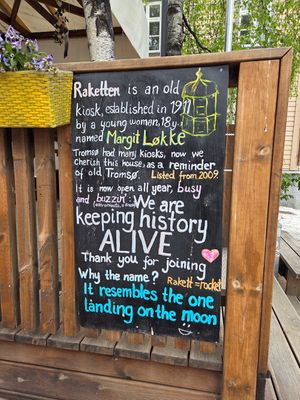 Raketten is an old
kiosk, established in 1911
by a young women, 18y.
named Margit Løkke
Tromsø had many kiosks, now we
cherish this house, as a reminder
of old Tromsø. Listed from 2009.
It is now open all year, busy
and buzzin'. We are
keeping history
ALIVE
Thank you for joining
Why the name? Rakett = rocket
It resembles the one
landing on the moon